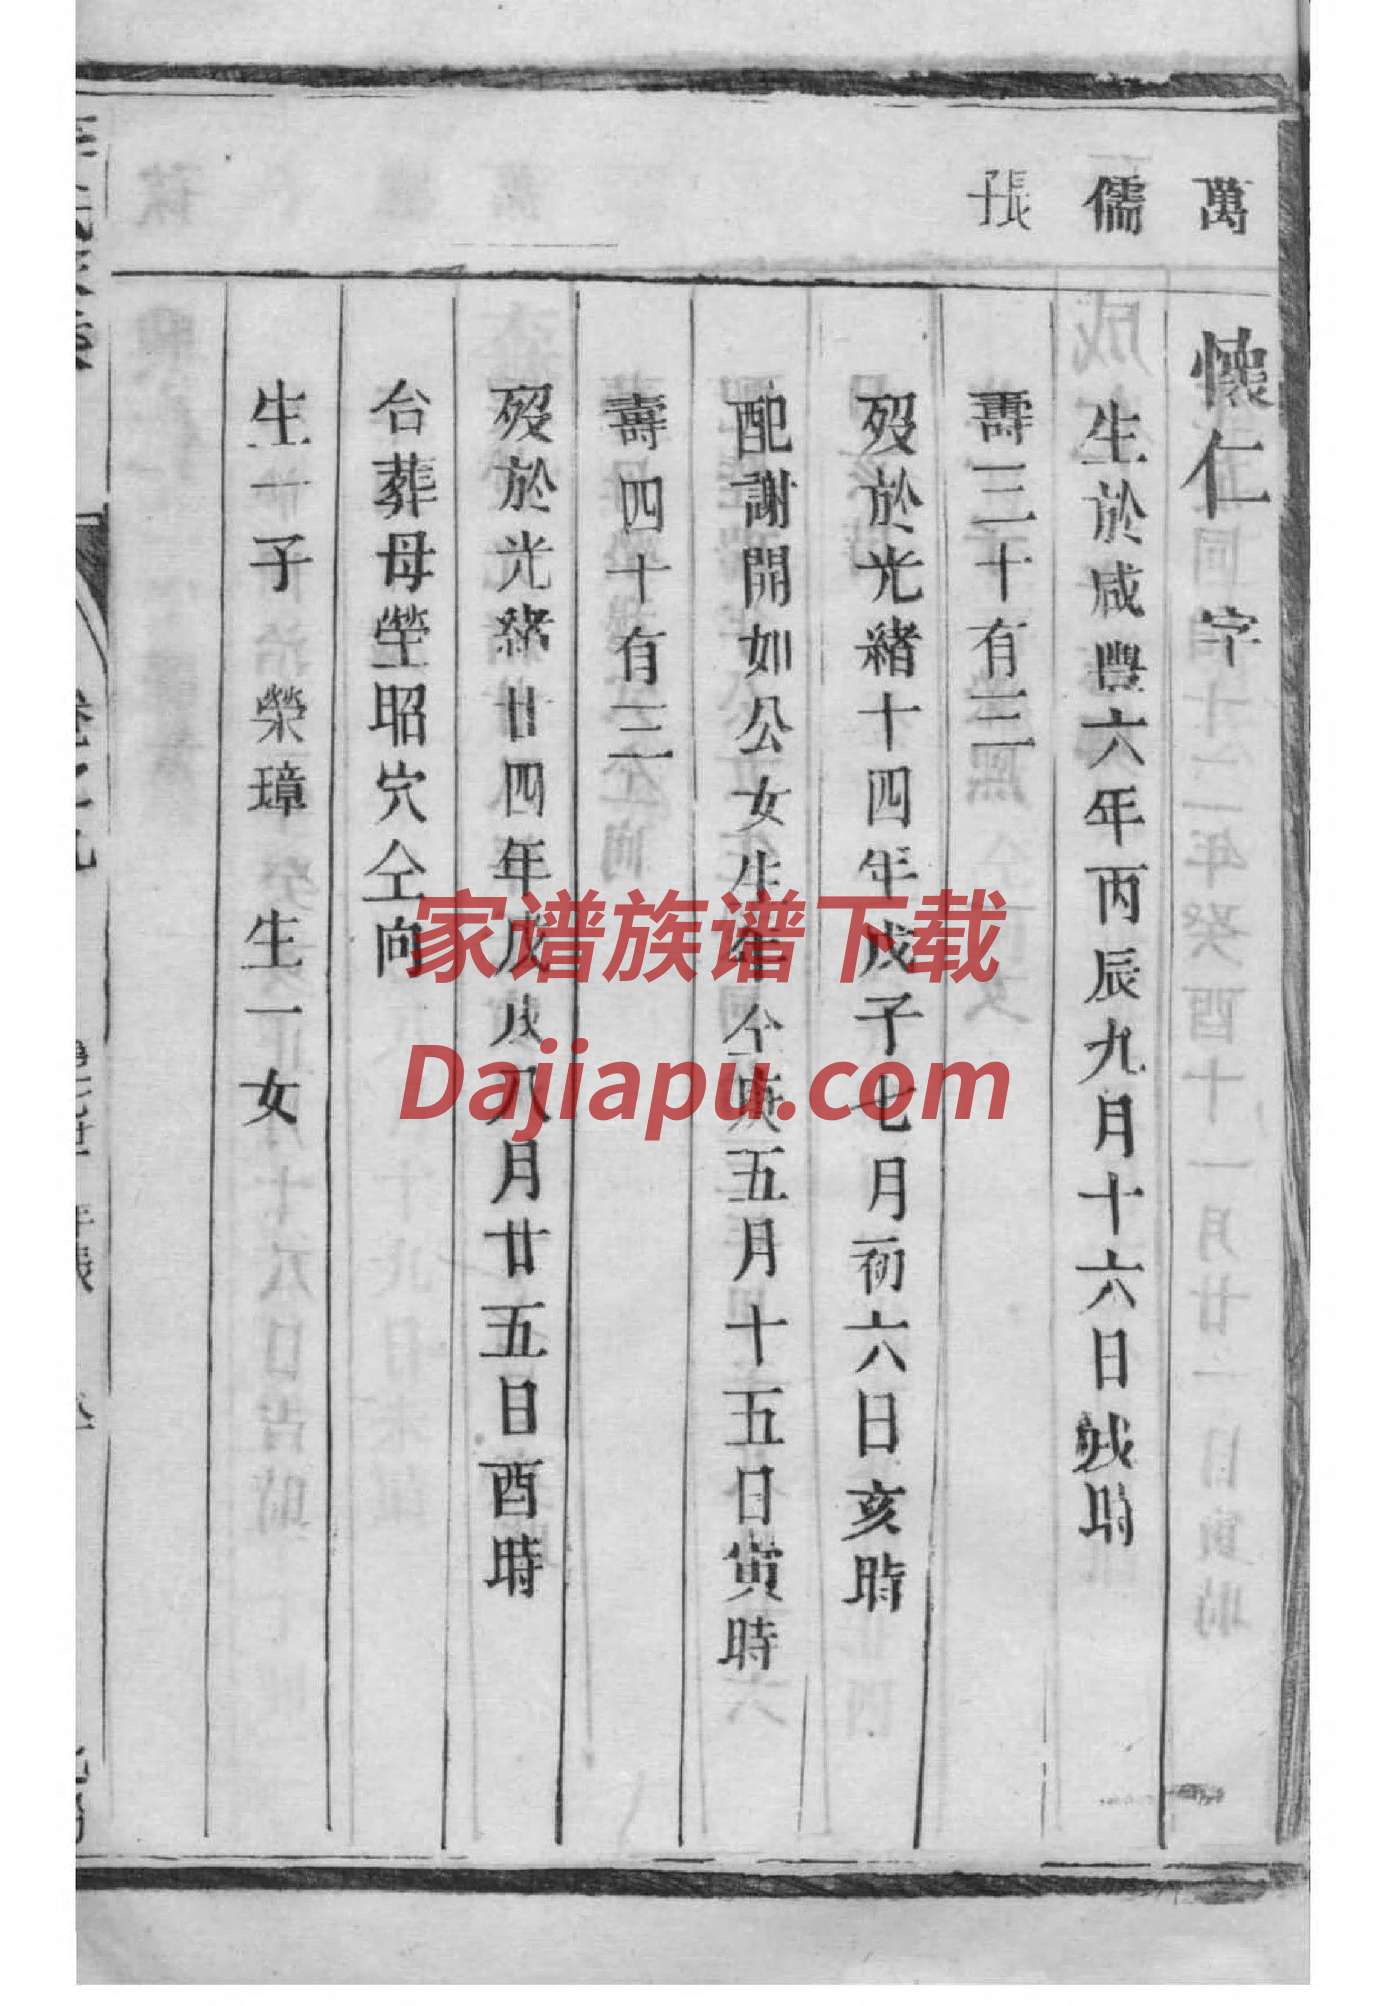 萬
儒
張
懷仁 字
生於咸豐六年丙辰九月十六日戌時
壽三十有三
歿於光緒十四年戊子七月初六日亥時
配謝開如公女生年仝庚五月十五日寅時
壽四十有三
歿於光緒廿四年戊戌八月廿五日酉時
台葬母塋昭穴仝向
生一子 榮璋 生一女
家谱族谱下载
Dajiapu.com